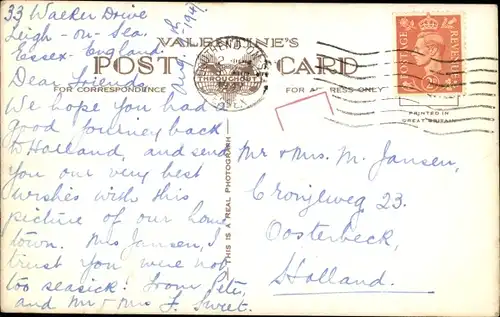 33 Walker Drive
Leigh-on-Sea
Essex. England.
Aug. 7th 1947
Dear Friends,
We hope you had a
good journey back
to Holland, and send
you our very best
wishes with this
picture of our home
town. Mrs Jansen, I
trust you were not
too seasick! From Pete,
and Mr & Mrs F. Sweet.
VALENTINE'S
POST CARD
FOR CORRESPONDENCE
FOR ADDRESS ONLY
THIS IS A REAL PHOTOGRAPH
SOUTHEND-ON-SEA
POSTAGE
REVENUE
PRINTED IN
GREAT BRITAIN
Mr & Mrs. M. Jansen,
Cronjéweg 23.
Oosterbeck,
Holland.